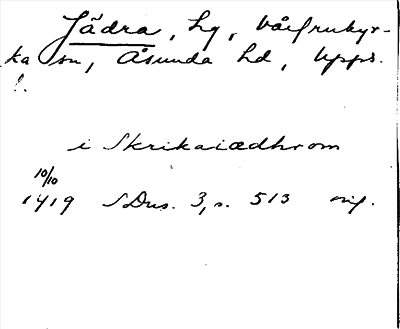 Jädra, hg, Vårfrukyr-
ka sn, Åsunda hd, Upps.
l.
i Skrikaiædhrom
10/10
1419 SDns. 3, s. 513 orig.